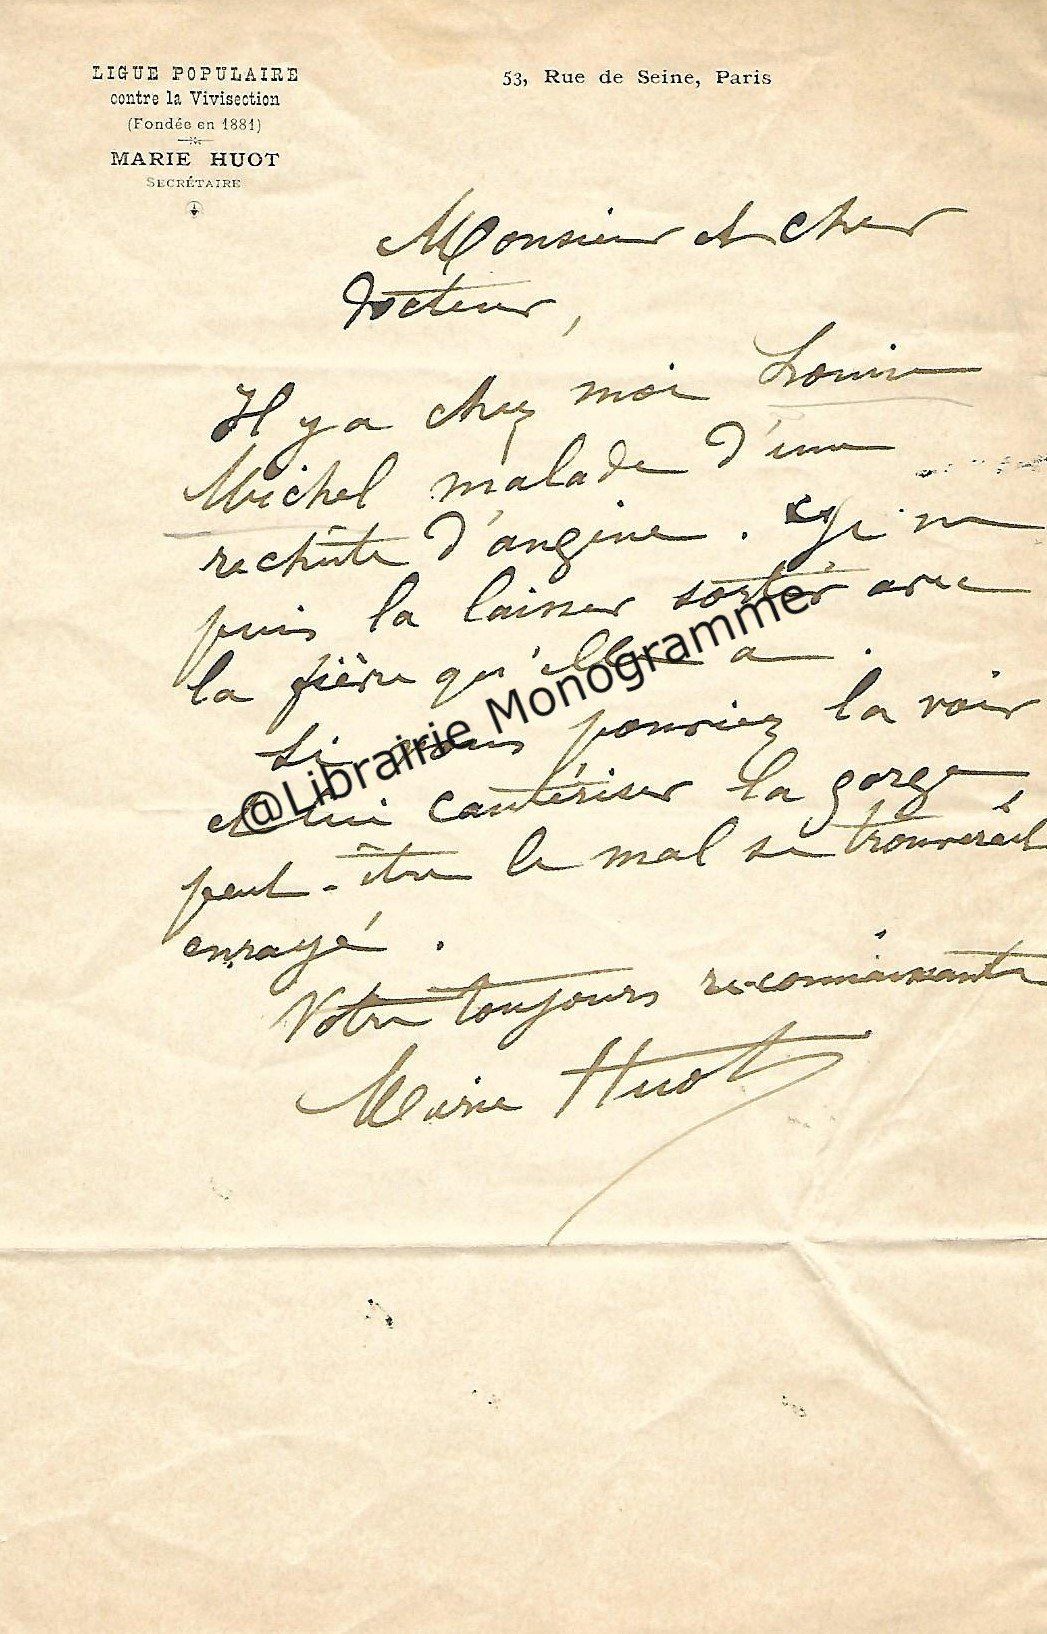 LIGUE POPULAIRE
contre la Vivisection
(Fondée en 1881)
MARIE HUOT
SECRÉTAIRE
53, Rue de Seine, Paris
Monsieur et cher
docteur,
Il y a chez moi Louise
Michel malade d'une
rechûte d'angine. Je ne
puis la laisser sortir avec
la fièvre qu'elle a.
Si vous pouviez la voir
et lui cautériser la gorge,
peut-être le mal se trouverait
enrayé.
Votre toujours reconnaissante
Marie Huot
@Librairie Monogramme